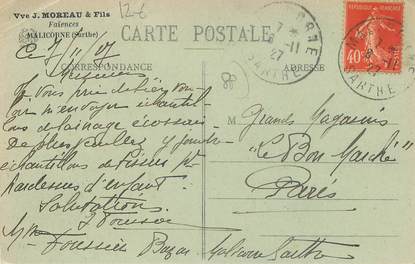 Vve J. MOREAU & Fils
Faïences
MALICORNE (Sarthe)
12-6
CARTE POSTALE
CORRESPONDANCE
ADRESSE
REPUBLIQUE FRANÇAISE
40c
7 *
8 -11
27
SARTHE
Ce 7/11/27
Messieurs
Je vous prie de bien vou
loir m'envoyer échantil
lons de lainage écossais
De plus veuillez y joindre
échantillons de tissus pr
d'enfant.
Salutations
Toussier
Mme Toussier Bazar Malicorne Sarthe
M Grands Magasins
"Le Bon Marché"
Paris